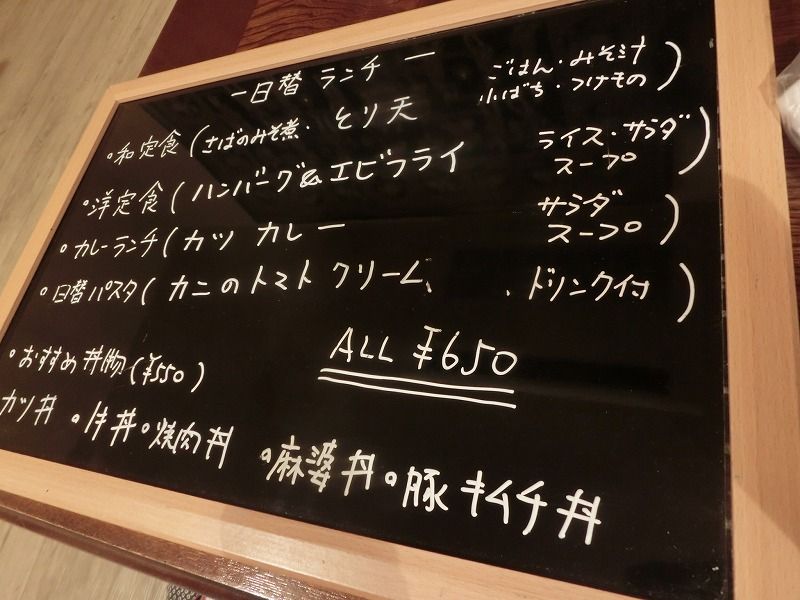 ー日替 ランチ ー
・和定食 (さばのみそ煮・とり天 ごはん・みそ汁 小ばち・つけもの)
・洋定食 (ハンバーグ&エビフライ ライス・サラダ スープ)
・カレーランチ (カツ カレー サラダ スープ)
・日替パスタ (カニのトマト クリーム、 ・ドリンク付)
ALL ¥650
・おすすめ丼物 (¥550)
カツ丼 ・牛丼・焼肉丼 ・麻婆丼・豚キムチ丼